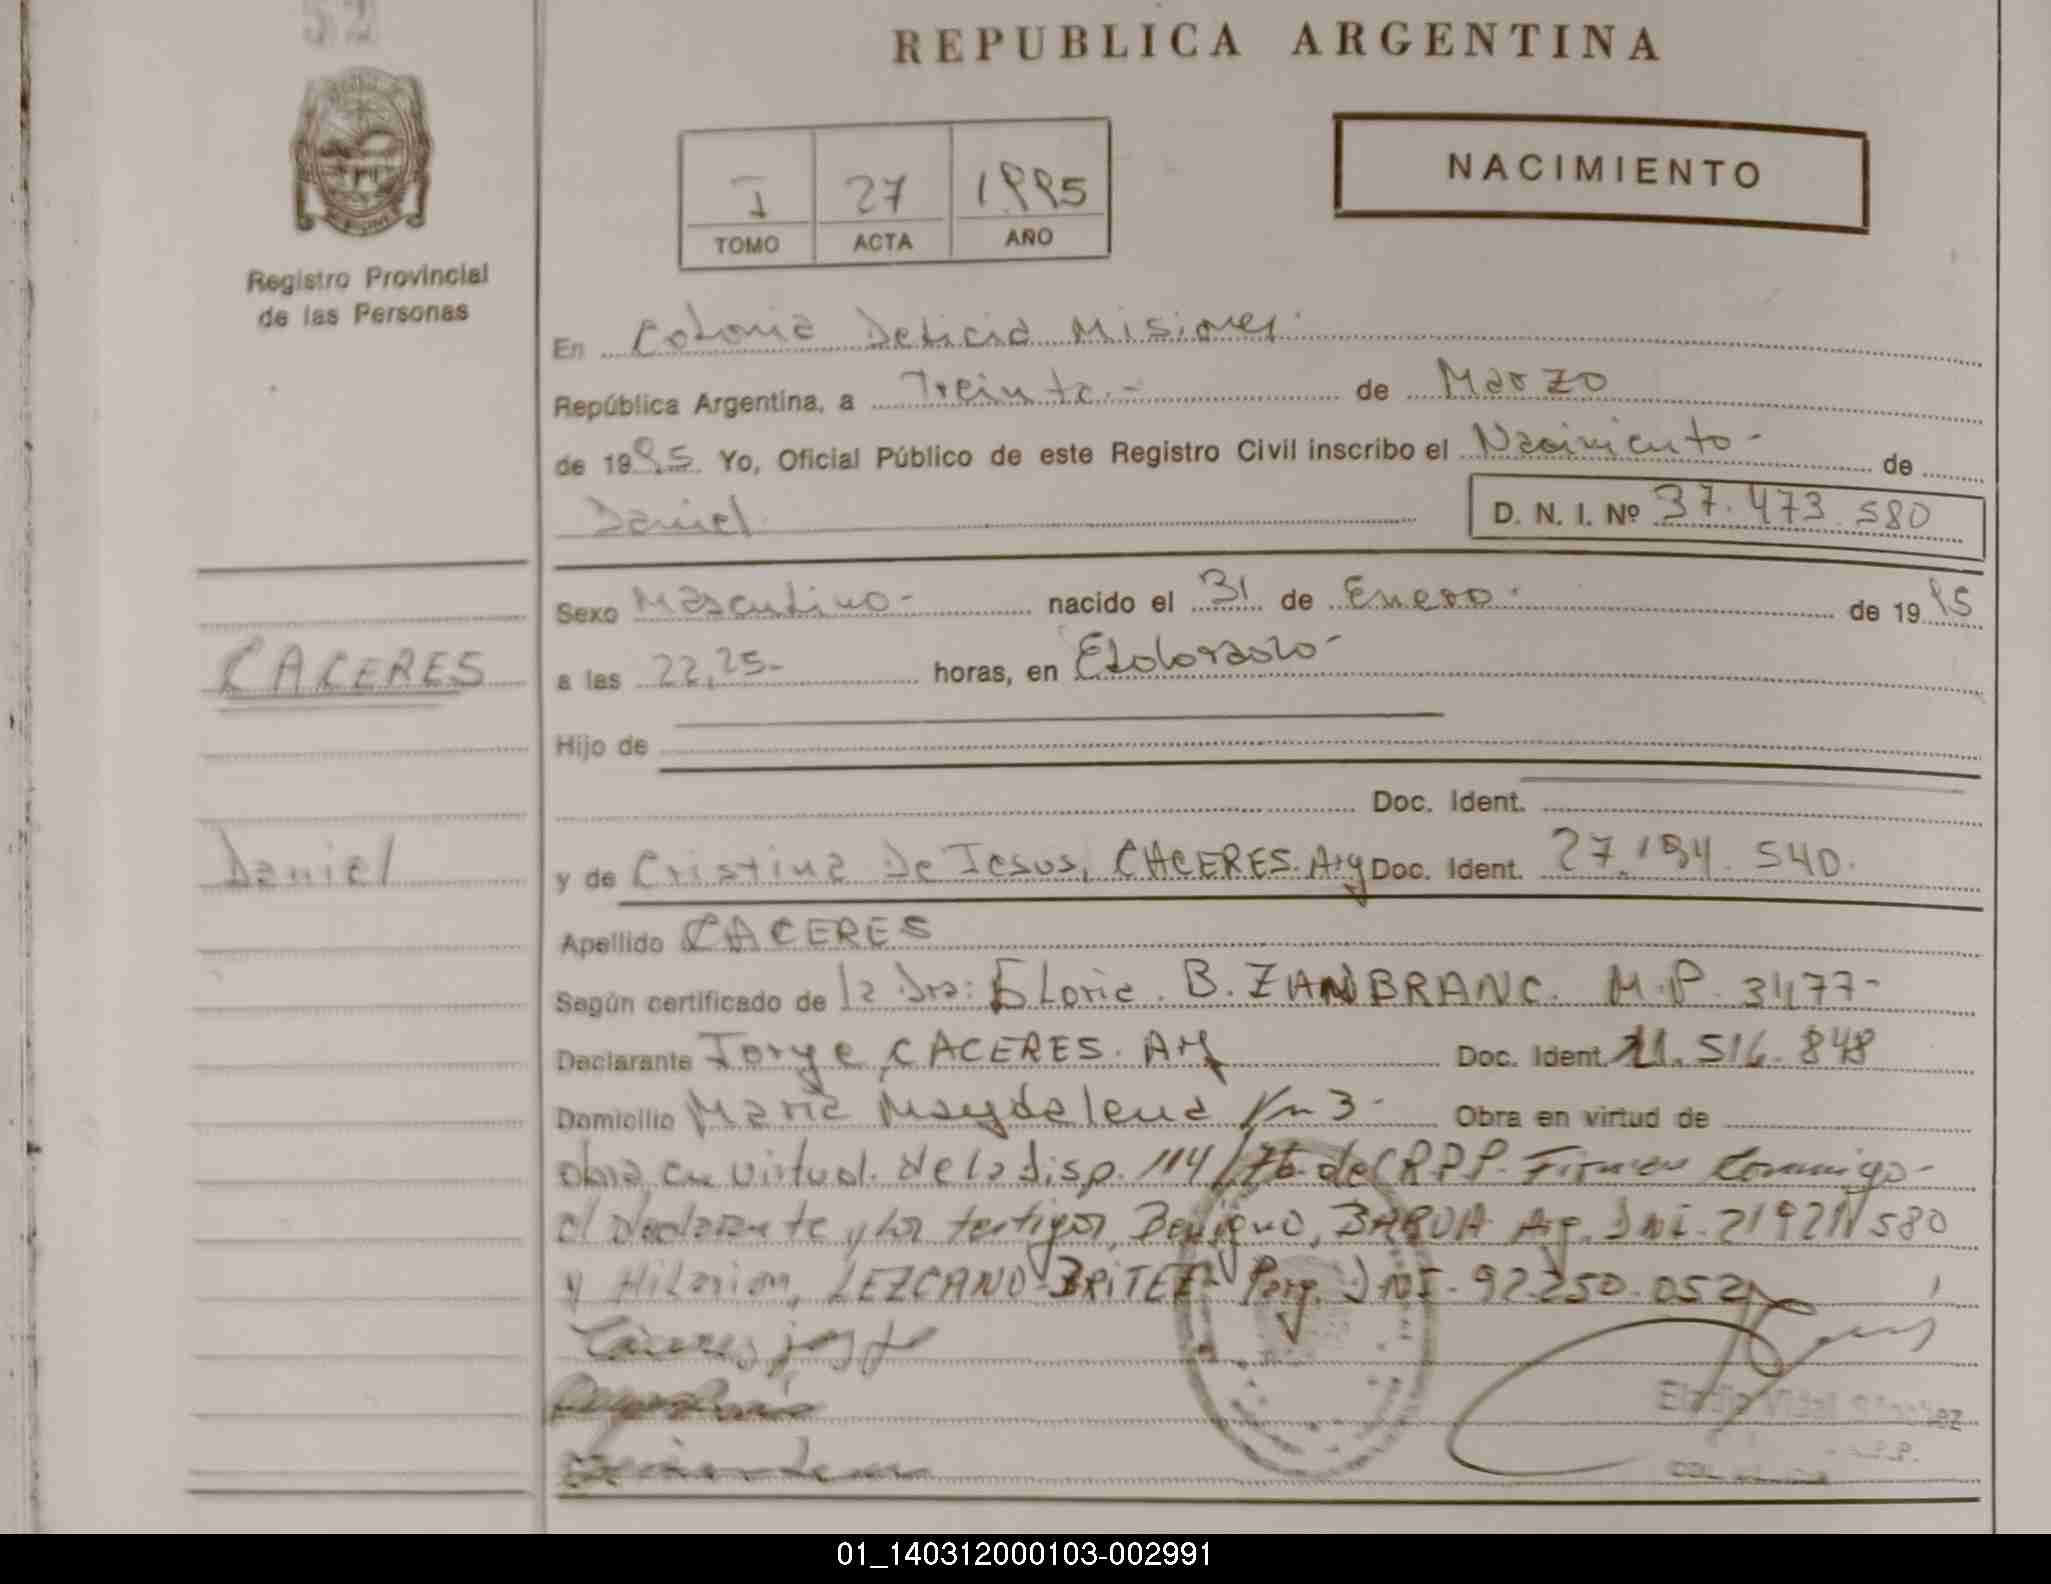 52
REPUBLICA ARGENTINA
NACIMIENTO
I 27 1995
TOMO ACTA AÑO
Registro Provincial
de las Personas
En Colonia Delicia Misiones
República Argentina, a Treinta.- de Marzo
de 1995 Yo, Oficial Público de este Registro Civil inscribo el Nacimiento - de
Daniel D. N. I. Nº 37.473.580
Sexo Masculino- nacido el 31 de Enero- de 1995
CACERES
a las 22,25- horas, en Eldorado-
Hijo de
Doc. Ident.
Daniel
y de Cristina De Jesus, CACERES. Arg Doc. Ident. 27.194.540.
Apellido CACERES
Según certificado de la Dra: B. M.P. 3477-
Declarante Jorge, CACERES. Arg Doc. Ident. 21.516.848
Domicilio Maria Magdalena Km 3- Obra en virtud de
obra en virtud de la disp. 114/76 del RPP. Firman conmigo-
el declarante y los testigos, Benigno, Arg. DNI. 580
y Hilarion, LEZCANO BRITEZ Parg. DNI- 92.250.052
Caceres jorge
01_140312000103-002991